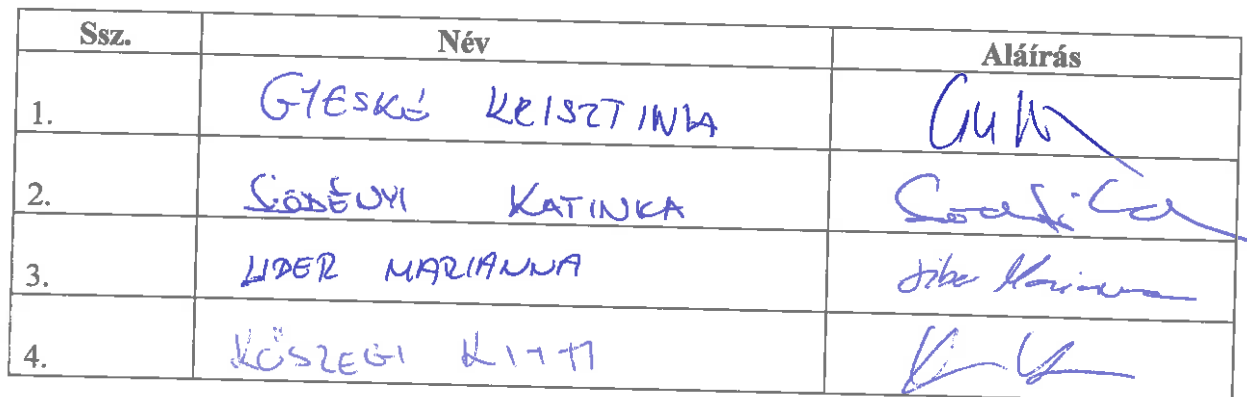 Ssz. Név Aláírás
1. GYESKÓ KRISZTINA
2. KATINKA
3. LIDER MARIANNA Marianna
4. KŐSZEGI KITTI